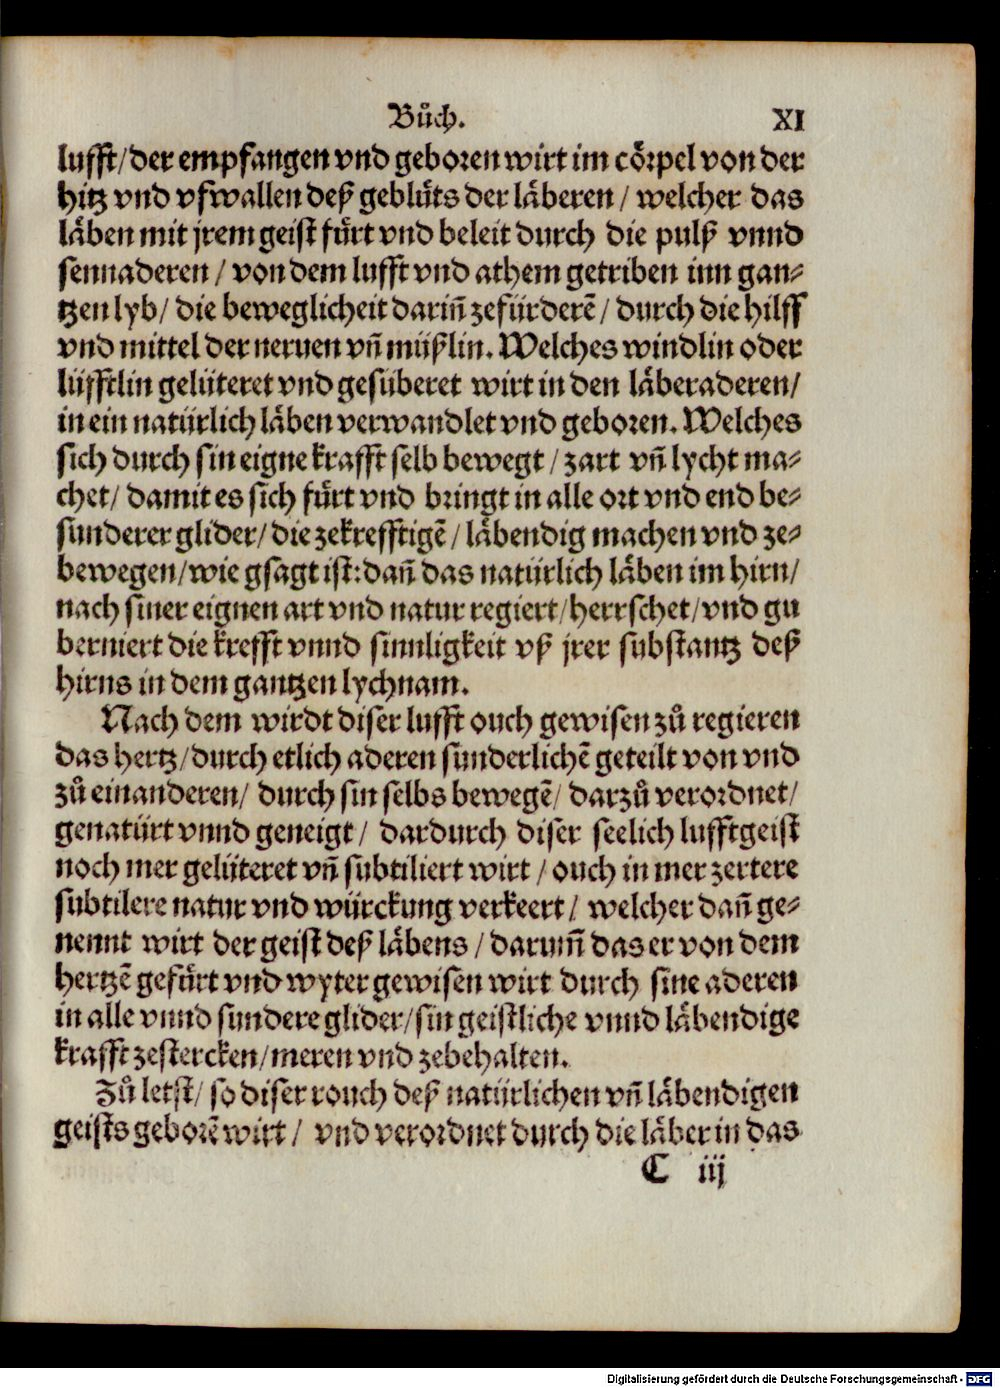 Bůch. XI
lufft/der empfangen vnd geboren wirt im cörpel von der
hitz vnd vfwallen deß geblüts der läberen / welcher das
läben mit jrem geist fürt vnd beleit durch die pulß vnnd
sennaderen / von dem lufft vnd athem getriben inn gan⸗
tzen lyb/ die beweglicheit dariñ zefürderẽ / durch die hilff
vnd mittel der neruen vñ müßlin. Welches windlin oder
lüfftlin gelüteret vnd gesüberet wirt in den läberaderen/
in ein natürlich läben verwandlet vnd geboren. Welches
sich durch sin eigne krafft selb bewegt / zart vñ lycht ma⸗
chet/ damit es sich fürt vnd bringt in alle ort vnd end be⸗
sunderer glider/ die zekrefftigẽ / läbendig machen vnd ze⸗
bewegen/wie gsagt ist: dañ das natürlich läben im hirn/
nach siner eignen art vnd natur regiert/herrschet/vnd gu
berniert die krefft vnnd sinnligkeit vß jrer substantz deß
hirns in dem gantzen lychnam.
Nach dem wirdt diser lufft ouch gewisen zů regieren
das hertz/durch etlich aderen sunderlichẽ geteilt von vnd
zů einanderen/ durch sin selbs bewegẽ/ darzů verordnet/
genatürt vnnd geneigt/ dardurch diser seelich lufftgeist
noch mer gelüteret vñ subtiliert wirt / ouch in mer zertere
subtilere natur vnd würckung verkeert/ welcher dañ ge⸗
nennt wirt der geist deß läbens / darumñ das er von dem
hertzẽ gefürt vnd wyter gewisen wirt durch sine aderen
in alle vnnd sundere glider/sin geistliche vnnd läbendige
krafft zestercken/meren vnd zebehalten.
Zů letst/ so diser rouch deß natürlichen vñ läbendigen
geists geborẽ wirt / vnd verordnet durch die läber in das
C iij
Digitalisierung gefördert durch die Deutsche Forschungsgemeinschaft - DFG